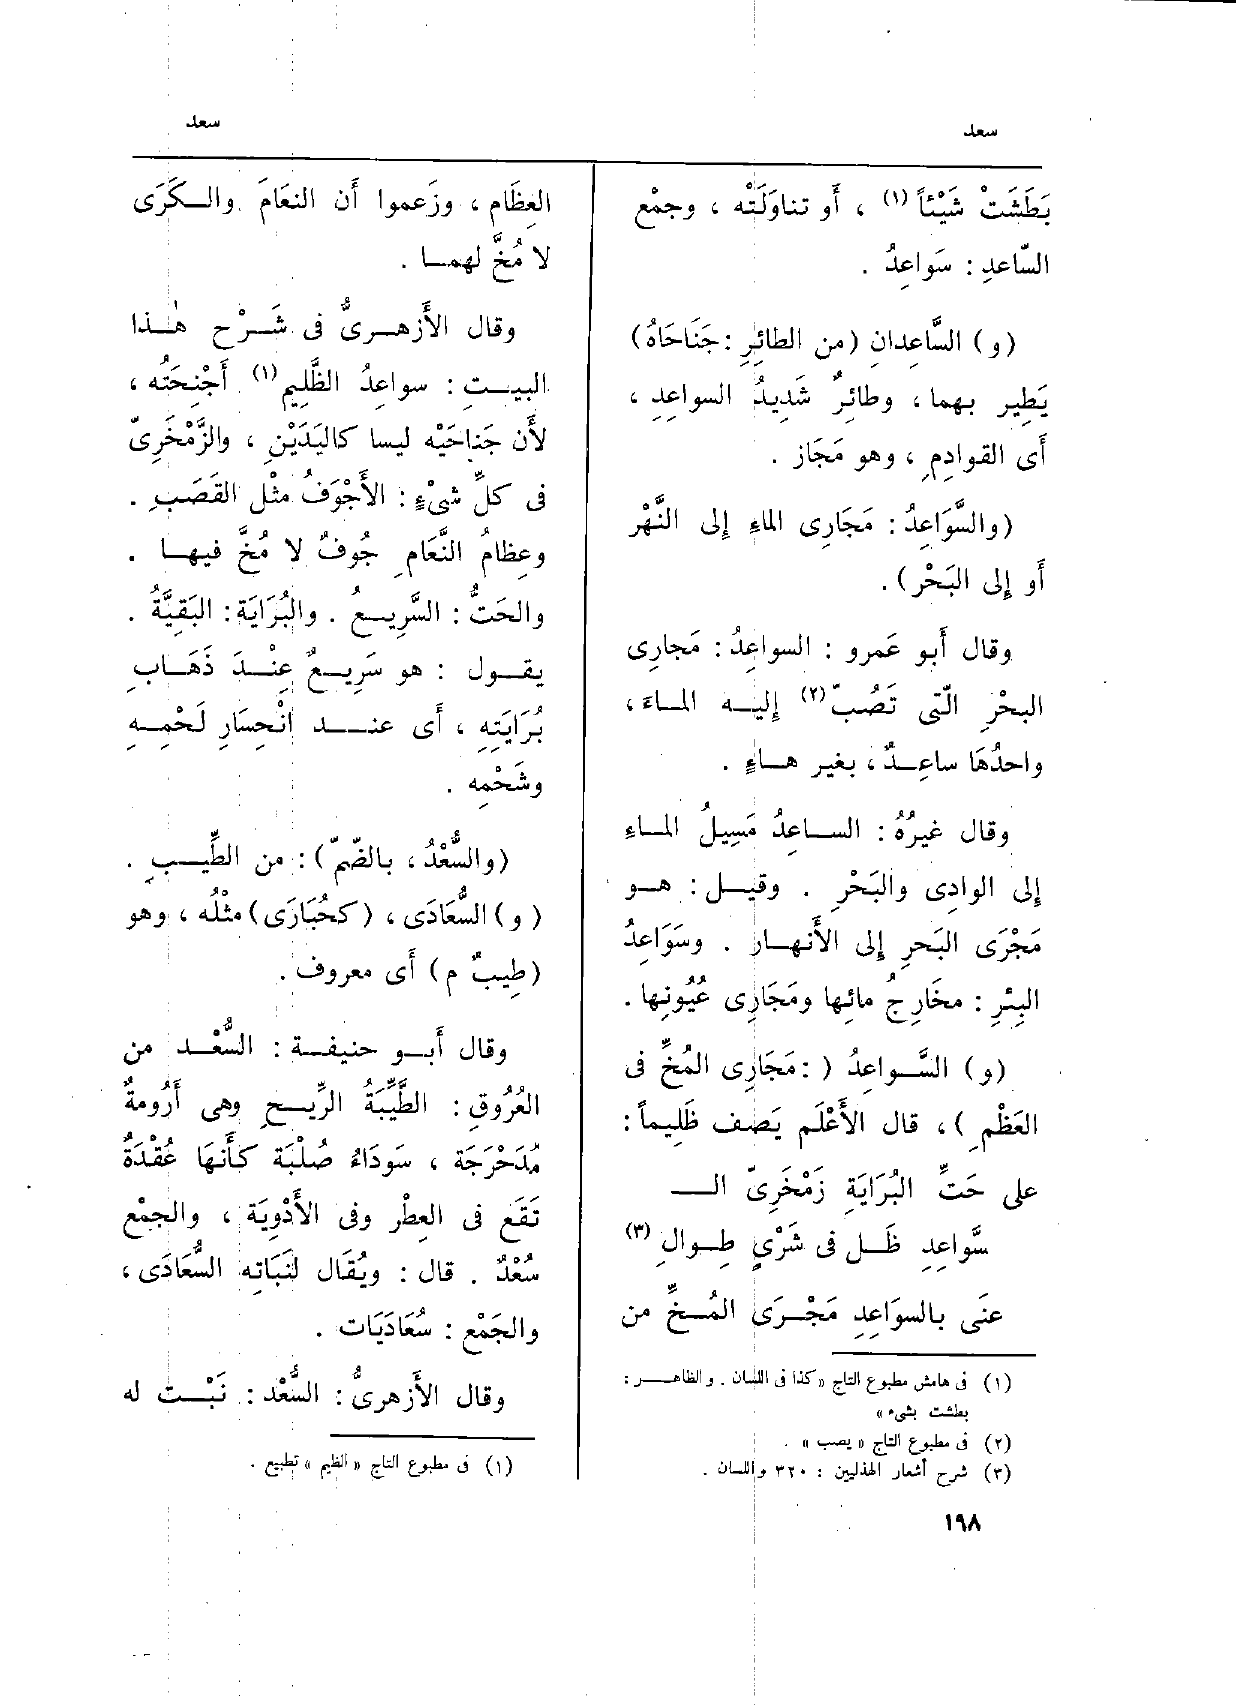 سعد
سعد
بَطَشَتْ شَيْئاً (١) ، أَو تناوَلَتْه ، وجمْع
السّاعدِ : سَواعِدُ .
(و) السَّاعِدانِ (من الطائِرِ : جَنَاحَاهُ)
يَطِير بهما ، وطائِرٌ شَدِيدُ السواعِدِ ،
أَى القوادِمِ ، وهو مَجَاز .
(والسَّوَاعِدُ : مَجَارِى الماءِ إِلى النَّهْر
أَو إِلى البَحْر) .
وقال أَبو عَمرو : السواعِدُ : مَجارِى
البحْرِ الّتى تَصُبّ (٢) إِليه الماءَ ،
واحدُها ساعِدٌ ، بغير هاءٍ .
وقال غيرُهُ : الساعِدُ مَسِيلُ الماءِ
إِلى الوادِى والبَحْرِ . وقيل : هو
مَجْرَى البَحرِ إِلى الأَنهارِ . وسَوَاعِدُ
البِئْرِ : مخَارِجُ مائِها ومَجَارِى عُيُونِها .
(و) السَّواعِدُ ( : مَجَارِى المُخِّ فى
العَظْمِ ) ، قال الأَعْلَم يَصف ظَلِيماً :
على حَتِّ البُرَايَةِ زَمْخَرِىّ الـ
سَّواعِدِ ظَل فى شَرْىٍ طِوالِ (٣)
عنَى بالسوَاعِدِ مَجْرَى المُخِّ من
(١) فى هامش مطبوع التاج « كذا فى اللسان . والظاهر :
بطشت بشىء »
(٢) فى مطبوع التاج « يصب » .
(٣) شرح أشعار الهذليين : ٣٢٠ واللسان .
العِظَام ، وزَعموا أَن النعَامَ والكَرَى
لا مُخَّ لهما .
وقال الأَزهرىُّ فى شَرْح هٰذا
البيتِ : سواعِدُ الظَّلِيم (١) أَجْنِحَتُه ،
لأَن جَناحَيْه ليسا كاليَدَيْنِ ، والزَّمْخَرِىّ
فى كلِّ شىْءٍ : الأَجْوَفُ مثْل القَصَبِ .
وعِظامُ النَّعَامِ جُوفٌ لا مُخَّ فيها .
والحَتُّ : السَّرِيعُ . والبُرَايَة : البَقِيَّةُ .
يقول : هو سَرِيعٌ عِنْدَ ذَهَابِ
بُرَايَتِهِ ، أَى عند انْحِسَارِ لَحْمِهِ
وشَحْمِه .
(والسُّعْدُ ، بالضّمّ) : من الطِّيبِ .
( و) السُّعَادَى ، (كحُبَارَى) مثلُه ، وهو
(طِيبٌ م) أَى معروف .
وقال أَبو حنيفة : السُّعْد من
العُرُوقِ : الطَّيِّبَةُ الرِّيحِ وهى أَرُومةٌ
مُدَحْرَجَة ، سَودَاءُ صُلْبَة كأَنَّهَا عُقْدَةٌ
تَقَع فى العِطْر وفى الأَدْوِيَة ، والجمْع
سُعْدٌ . قال : ويُقَال لنَبَاتِه السُّعَادَى ،
والجَمْع : سُعَادَيَات .
وقال الأَزهرىُّ : السُّعْد : نَبْت له
(١) فى مطبوع التاج « الظيم » تطبيع .
١٩٨